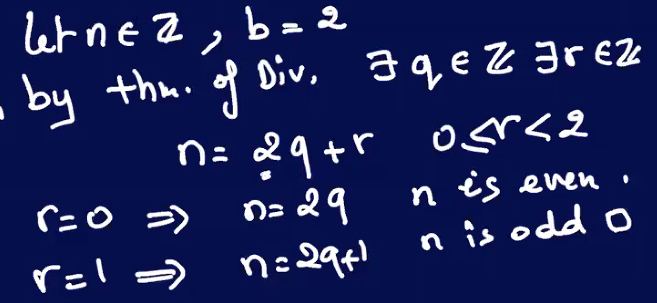 let n ∈ ℤ, b = 2
by thm. of Div. ∃ q ∈ ℤ ∃ r ∈ ℤ
n = 2q + r 0 ≤ r < 2
r = 0 ⇒ n = 2q n is even.
r = 1 ⇒ n = 2q+1 n is odd □